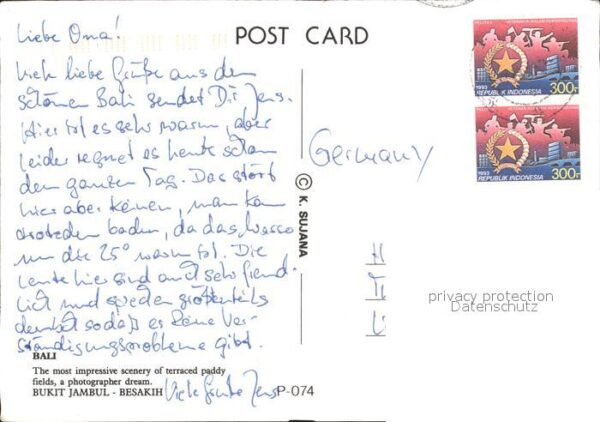 Liebe Oma!
Viele liebe Grüße aus dem
schönen Bali sendet Dir Jens.
Hier ist es sehr warm, aber
leider regnet es heute schon
den ganzen Tag. Das stört
hier aber keinen, man kann
trotzdem baden, da das Wasser
um die 25° warm ist. Die
Leute hier sind auch sehr freund-
lich und sprechen größtenteils
deutsch sodaß es keine Ver-
ständigungsprobleme gibt.
Viele Grüße Jens
BALI
The most impressive scenery of terraced paddy
fields, a photographer dream.
BUKIT JAMBUL - BESAKIH
P-074
POST CARD
© K. SUJANA
Germany
1993
REPUBLIK INDONESIA
300r
1993
REPUBLIK INDONESIA
300r
privacy protection
Datenschutz